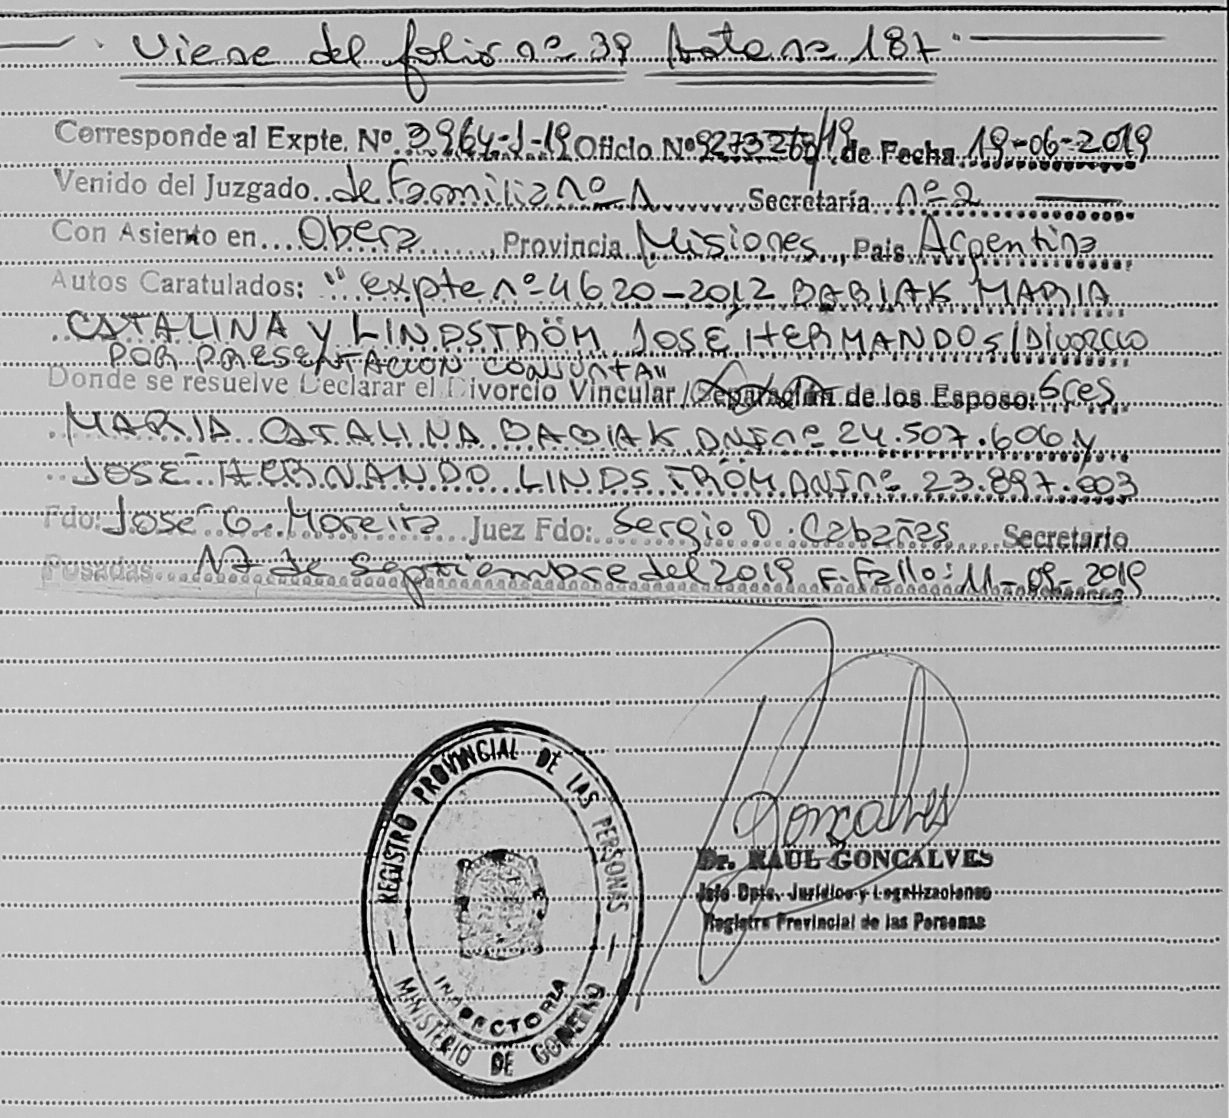 Viene del folio nº 39 Acta nº 187
Corresponde al Expte. Nº 3964-J-19 Oficio Nº 9273266/19 de Fecha 19-06-2019
Venido del Juzgado de Familia nº 1 Secretaría nº 2
Con Asiento en Obera, Provincia Misiones, País Argentina
Autos Caratulados: "expte nº 4620-2012 BABIAK MARIA
CATALINA Y LINDSTRÖM JOSÉ HERMANDO S/Divorcio
POR PRESENTACION CONJUNTA"
Donde se resuelve Declarar el Divorcio Vincular / Separación de los Esposo: Sres
MARIA CATALINA BABIAK DNI nº 24.507.606 y
JOSÉ HERNANDO LINDSTRÖM DNI nº 23.897.003
Fdo: José G. Moreira Juez Fdo: Sergio D. Cabañas Secretario
Posadas 17 de Septiembre del 2019 F. Fallo: 11-09-2019
REGISTRO PROVINCIAL DE LAS PERSONAS
INSPECTORIA
MINISTERIO DE GOBIERNO
Goncalves
Dr. RAUL GONCALVES
Jefe Dpto. Jurídico y Legalizaciones
Registro Provincial de las Personas